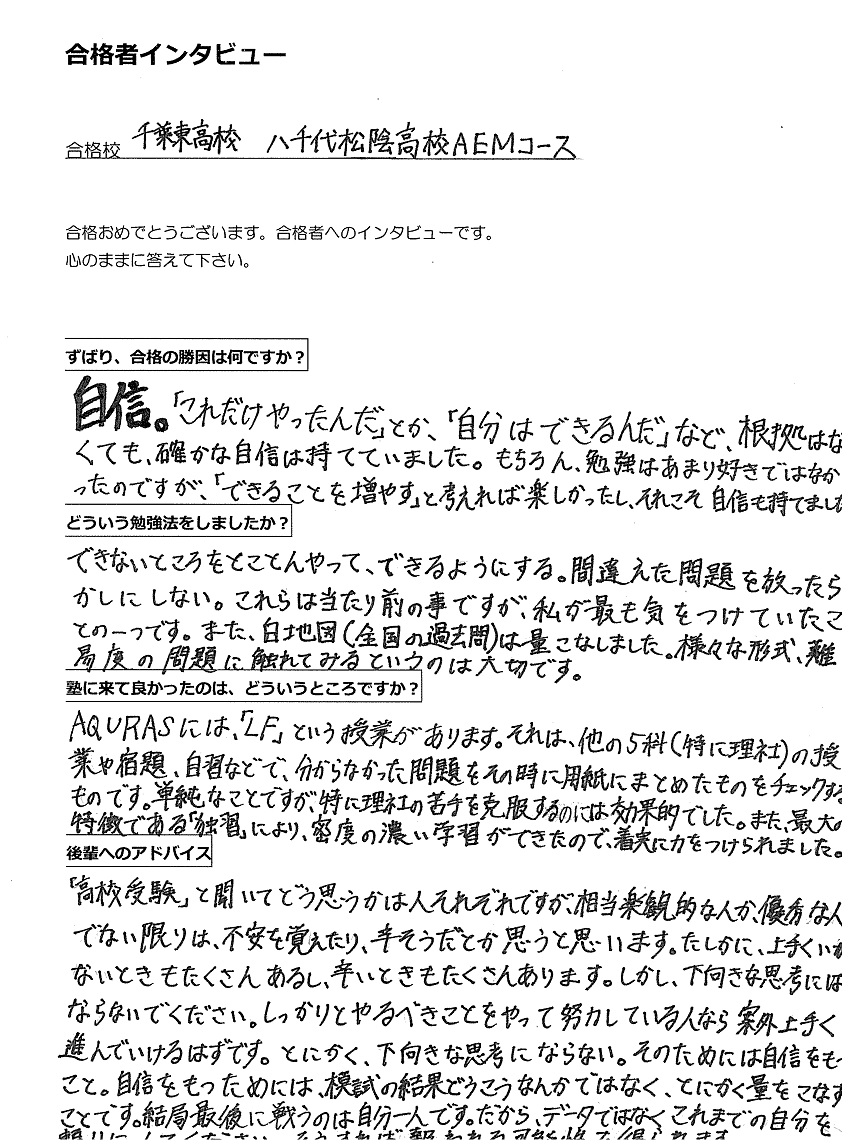 合格者インタビュー
合格校 千葉東高校 八千代松陰高校AEMコース
合格おめでとうございます。合格者へのインタビューです。
心のままに答えて下さい。
ずばり、合格の勝因は何ですか？
自信。「これだけやったんだ」とか、「自分はできるんだ」など、根拠はな
くても、確かな自信は持てていました。もちろん、勉強はあまり好きではなか
ったのですが、「できることを増やす」と考えれば楽しかったし、それこそ自信も持てまし
どういう勉強法をしましたか？
できないところをとことんやって、できるようにする。間違えた問題を放ったら
かしにしない。これらは当たり前の事ですが、私が最も気をつけていたこ
との一つです。また、白地図（全国の過去問）は量こなしました。様々な形式、難
易度の問題に触れてみるというのは大切です。
塾に来て良かったのは、どういうところですか？
AQURASには、「LF」という授業があります。それは、他の5科（特に理社）の授
業や宿題、自習などで、分からなかった問題をその時に用紙にまとめたものをチェックする
ものです。単純なことですが、特に理社の苦手を克服するのには効果的でした。また、最大の
特徴である「独習」により、密度の濃い学習ができたので、着実に力をつけられました。
後輩へのアドバイス
「高校受験」と聞いてどう思うかは人それぞれですが、相当楽観的な人か、優秀な人
でない限りは、不安を覚えたり、辛そうだとか思うと思います。たしかに、上手くいか
ないときもたくさんあるし、辛いときもたくさんあります。しかし、下向きな思考には
ならないでください。しっかりとやるべきことをやって努力している人なら案外上手く
進んでいけるはずです。とにかく、下向きな思考にならない。そのためには自信をも
こと。自信をもつためには、模試の結果どうこうなんかではなく、とにかく量をこなす
ことです。結局最後に戦うのは自分一人です。だから、データではなくこれまでの自分を